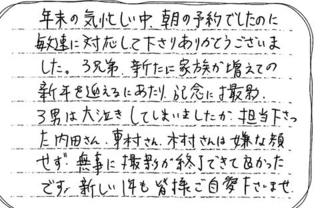 年末の気忙しい中、朝の予約でしたのに
敏速に対応して下さりありがとうございま
した。3兄弟、新たに家族が増えての
新年を迎えるにあたり、記念に撮影。
3男は大泣きしてしまいましたが、担当下さっ
た内田さん、東村さん、木村さんは嫌な顔
せず無事に撮影が終了できて良かった
です。新しい1年も皆様ご自愛下さいませ